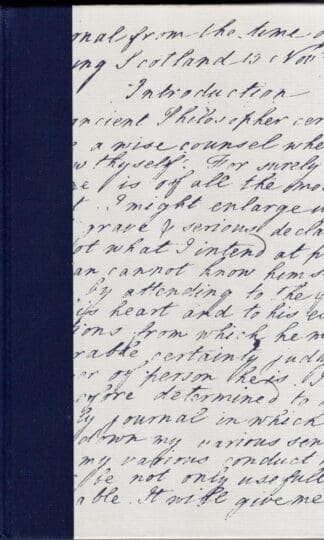 onal from the time o
ing Scotland 15 Nov
Introduction
ancient Philosopher cer
a wise counsel whe
w thyself. For surely
e is of all the mo
t. I might enlarge u
grave & serious decla
ot what I intend at p
an cannot know hims
by attending to the
is heart and to his e
tions from which he m
rable certainty judg
er of person he is. I
efore determined to
ly journal in which
down my various sen
my various conduct
be not only usefull
able. It will give me